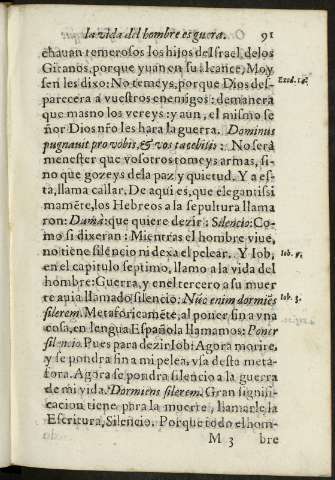 la vida del hombre es guerra. 91
chauan temerosos los hijos de Israel, delos
Gitanos, porque yuan en su alcance, Moy
sen les dixo: No temeys, porque Dios des-
parecera a vuestros enemigos: de manera
que mas no los vereys: y aun, el mismo se
ñor Dios nro les hara la guerra. Dominus
pugnauit pro vobis, & vos tacebitis: No sera
menester que vosotros tomeys armas, si-
no que gozeys de la paz y quietud. Y a es-
ta, llama callar. De aqui es, que elegantissi
mamẽte, los Hebreos a la sepultura llama
ron: Damà: que quiere dezir: Silencio: Co-
mo si dixeran: Mientras el hombre viue,
no tiene silencio ni dexa el pelear. Y Iob,
en el capitulo septimo, llamo a la vida del
hombre: Guerra, y en el tercero a su muer
te avia llamado silencio: Nũc enim dormiẽs
silerem. Metaforicamẽte, al poner fin a vna
cosa, en lengua Española llamamos: Poner
silencio. Pues para dezir Iob: Agora morire,
y se pondra fin a mi pelea, vsa desta meta-
fora. Agora se pondra silencio a la guerra
de mi vida. Dormiens silerem. Gran signifi-
cacion tiene para la muerte, llamarle la
Escritura, Silencio. Porque todo el hom-
M 3 bre
Exod. 14.
Iob. 7.
Iob. 3.